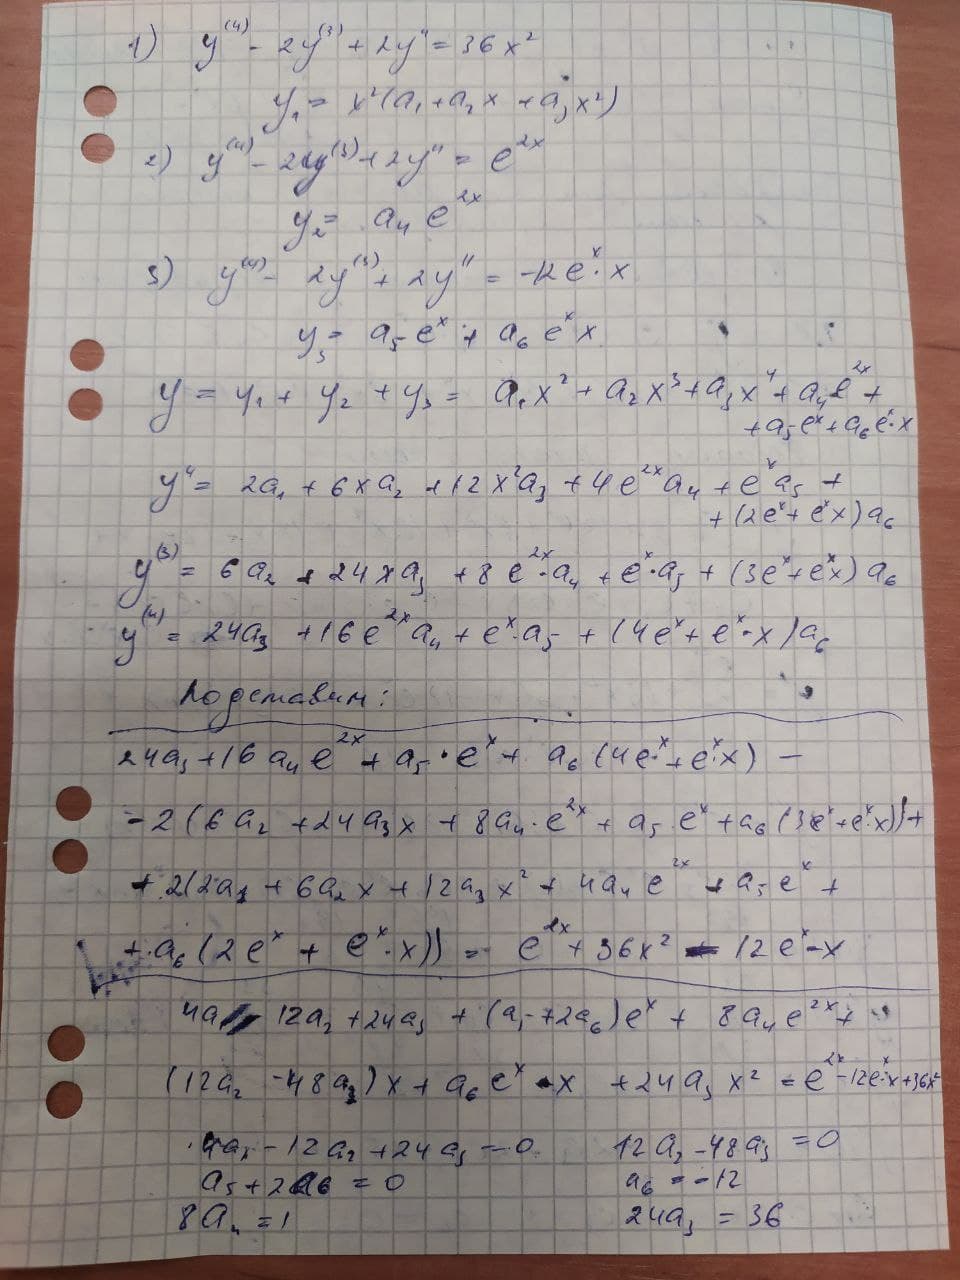 1) y⁽⁴⁾ - 2y⁽³⁾ + 2y'' = 36x²
y₁ = x²(a₁ + a₂x + a₃x²)
2) y⁽⁴⁾ - 2y⁽³⁾ + 2y'' = e²ˣ
y₂ = a₄e²ˣ
3) y⁽⁴⁾ - 2y⁽³⁾ + 2y'' = -12eˣ·x
y₃ = a₅eˣ + a₆eˣx
y = y₁ + y₂ + y₃ = a₁x² + a₂x³ + a₃x⁴ + a₄e²ˣ +
+ a₅eˣ + a₆eˣ·x
y'' = 2a₁ + 6xa₂ + 12x²a₃ + 4e²ˣa₄ + eˣa₅ +
+ (2eˣ + eˣx)a₆
y⁽³⁾ = 6a₂ + 24xa₃ + 8e²ˣ·a₄ + eˣ·a₅ + (3eˣ + eˣx)a₆
y⁽⁴⁾ = 24a₃ + 16e²ˣa₄ + eˣ·a₅ + (4eˣ + eˣ·x)a₆
Подставим:
24a₃ + 16a₄e²ˣ + a₅·eˣ + a₆(4eˣ + eˣ·x) -
- 2(6a₂ + 24a₃x + 8a₄·e²ˣ + a₅·eˣ + a₆(3eˣ + eˣ·x)) +
+ 2(2a₁ + 6a₂x + 12a₃x² + 4a₄e²ˣ + a₅eˣ +
+ a₆(2eˣ + eˣ·x)) = e²ˣ + 36x² - 12eˣ·x
4a₁ - 12a₂ + 24a₃ + (a₅ + 2a₆)eˣ + 8a₄e²ˣ +
(12a₂ - 48a₃)x + a₆eˣ·x + 24a₃x² = e²ˣ - 12eˣ·x + 36x²
4a₁ - 12a₂ + 24a₃ = 0 12a₂ - 48a₃ = 0
a₅ + 2a₆ = 0 a₆ = -12
8a₄ = 1 24a₃ = 36